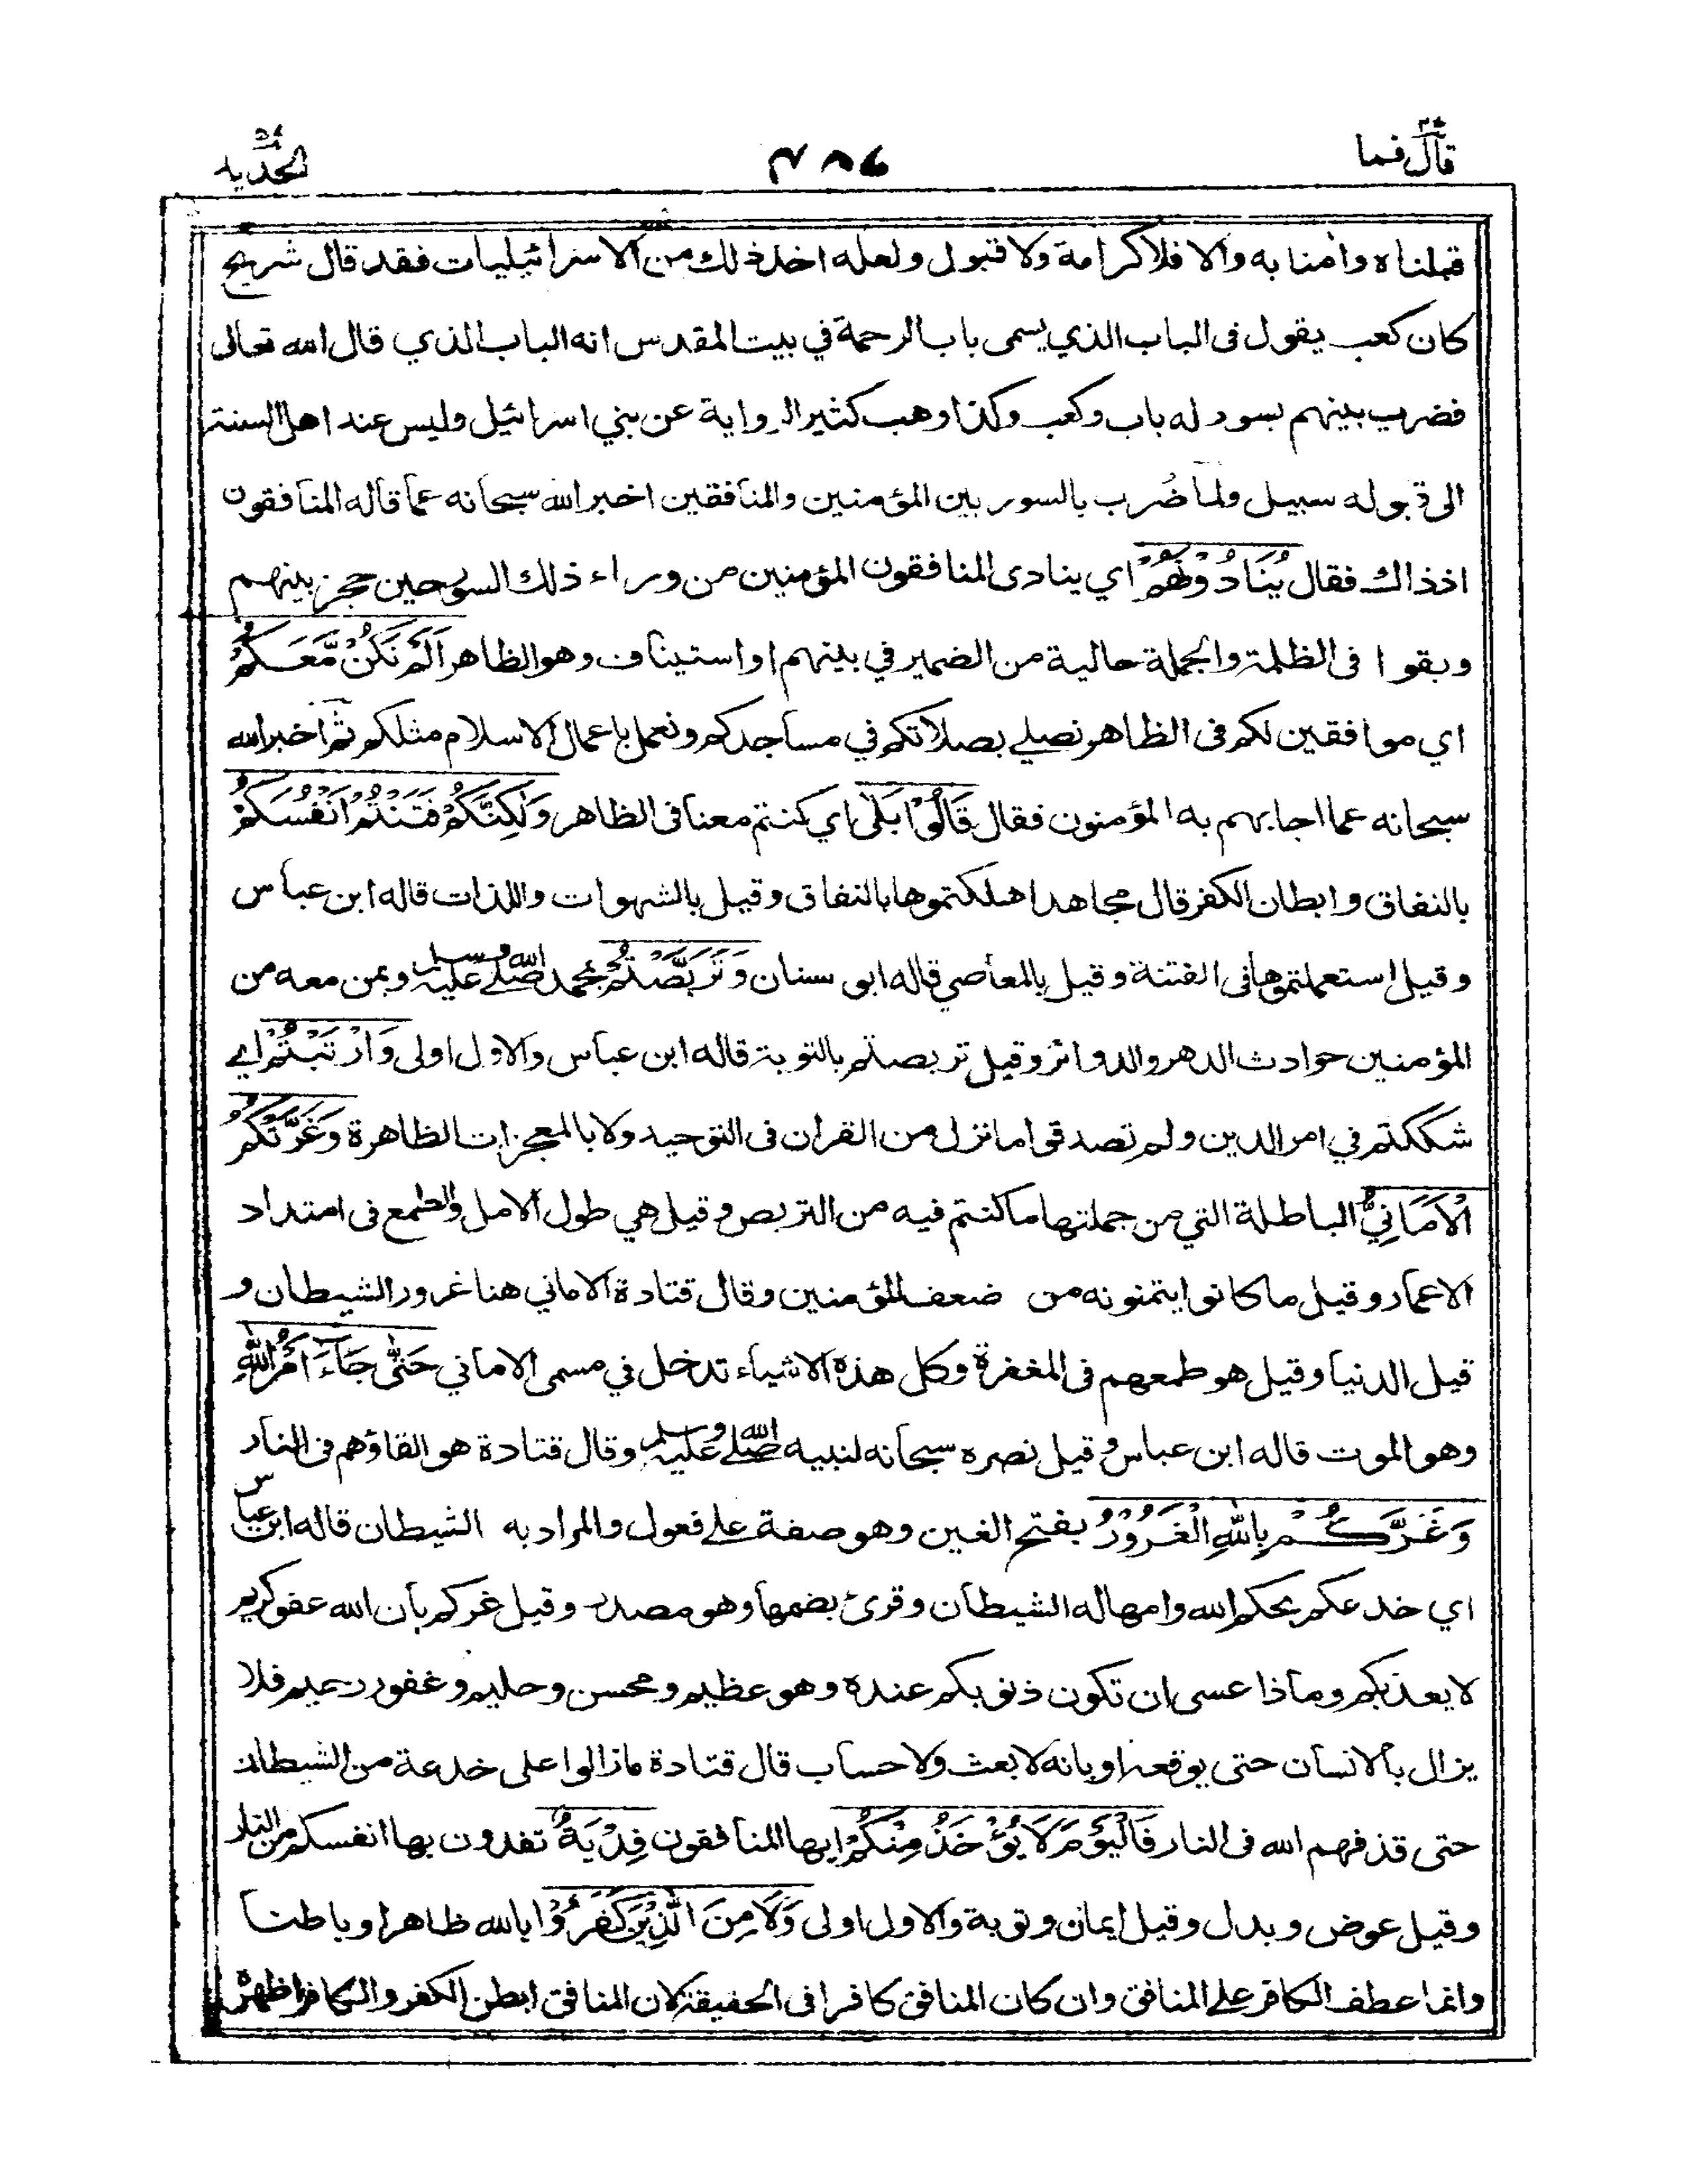 قال فما
الحديد
قبلناه وامنا به والا فلا كرامة ولا قبول ولعله اخذ ذلك من الاسرائيليات فقد قال شريح
كان كعب يقول فى الباب الذي يسمى باب الرحمة في بيت المقدس انه الباب الذي قال الله تعالى
فضرب بينهم بسور له باب وكعب وكذا وهب كثير الرواية عن بني اسرائيل وليس عند اهل السنة
الى قبوله سبيل ولما ضُرب بالسور بين المؤمنين والمنافقين اخبر الله سبحانه عما قاله المنافقون
اذ ذاك فقال يُنَادُوْنَهُمْ اي ينادى المنافقون المؤمنين من وراء ذلك السور حين حجز بينهم
وبقوا فى الظلمة والجملة حالية من الضمير في بينهم او استيناف وهو الظاهر اَلَمْ نَكُنْ مَّعَكُمْ
اي موافقين لكم فى الظاهر نصلي بصلاتكم في مساجدكم ونعمل باعمال الاسلام مثلكم ثم اخبر الله
سبحانه عما اجابهم به المؤمنون فقال قَالُوْا بَلٰى اي كنتم معنا فى الظاهر وَلٰكِنَّكُمْ فَتَنْتُمْ اَنْفُسَكُمْ
بالنفاق وابطان الكفر قال مجاهد اهلكتموها بالنفاق وقيل بالشهوات واللذات قاله ابن عباس
وقيل استعملتموها فى الفتنة وقيل بالمعاصي قاله ابو سنان وَتَرَبَّصْتُمْ بمحمد صلى الله عليه وسلم وبمن معه من
المؤمنين حوادث الدهر والدوائر وقيل تربصتم بالتوبة قاله ابن عباس والاول اولى وَارْتَبْتُمْ اي
شككتم في امر الدين ولم تصدقوا ما نزل من القران فى التوحيد ولا بالمعجزات الظاهرة وَغَرَّتْكُمُ
الْاَمَانِيُّ الباطلة التي من جملتها ما كنتم فيه من التربص وقيل هي طول الامل والطمع فى امتداد
الاعمار وقيل ما كانوا يتمنونه من ضعف المؤمنين وقال قتادة الاماني هنا غرور الشيطان و
قيل الدنيا وقيل هو طمعهم فى المغفرة وكل هذه الاشياء تدخل في مسمى الاماني حَتّٰى جَآءَ اَمْرُ اللّٰهِ
وهو الموت قاله ابن عباس وقيل نصره سبحانه لنبيه صلى الله عليه وسلم وقال قتادة هو القاؤهم فى النار
وَغَرَّكُمْ بِاللّٰهِ الْغَرُوْرُ بفتح الغين وهو صفة على فعول والمراد به الشيطان قاله ابن عباس
اي خدعكم بحكم الله وامهاله الشيطان وقرئ بضمها وهو مصدر وقيل غركم بأن الله عفو كريم
لا يعذبكم وماذا عسى ان تكون ذنوبكم عنده وهو عظيم ومحسن وحليم وغفور رحيم فلا
يزال بالانسان حتى يوقعه او بانه لا بعث ولا حساب قال قتادة ما زالوا على خدعة من الشيطان
حتى قذفهم الله فى النار فَالْيَوْمَ لَا يُؤْخَذُ مِنْكُمْ ايها المنافقون فِدْيَةٌ تفدون بها انفسكم من النار
وقيل عوض وبدل وقيل ايمان وتوبة والاول اولى وَلَا مِنَ الَّذِيْنَ كَفَرُوْا بالله ظاهرا وباطنا
وانما عطف الكافر على المنافق وان كان المنافق كافرا فى الحقيقة لان المنافق ابطن الكفر والكافر اظهره